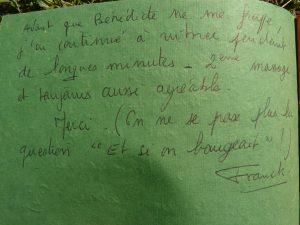 Avant que Bénédicte ne me
j'ai continué à vibrer pendant
de longues minutes - 2ème massage
et toujours aussi agréable.
Merci. (On ne se pose plus la
question "Et si on bougeait"!)
Franck.